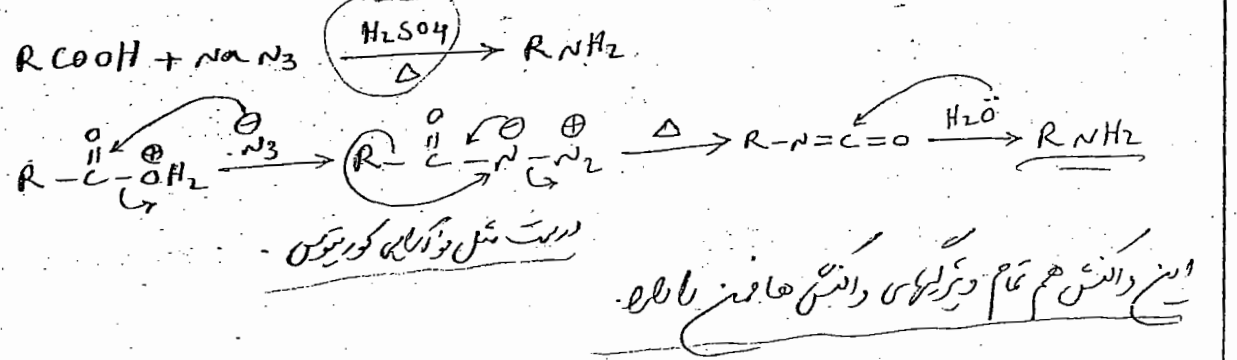 RCOOH + NaN3 —H2SO4 / Δ→ RNH2
R–C(=O)–⊕OH2 ⊖N3 → R–C(=O)–N⊖–N2⊕ —Δ→ R–N=C=O —H2Ö→ RNH2
درست مثل نوآرایی کورتیوس.
این واکنش هم تمام ویژگیهای واکنش هافمن را دارد.